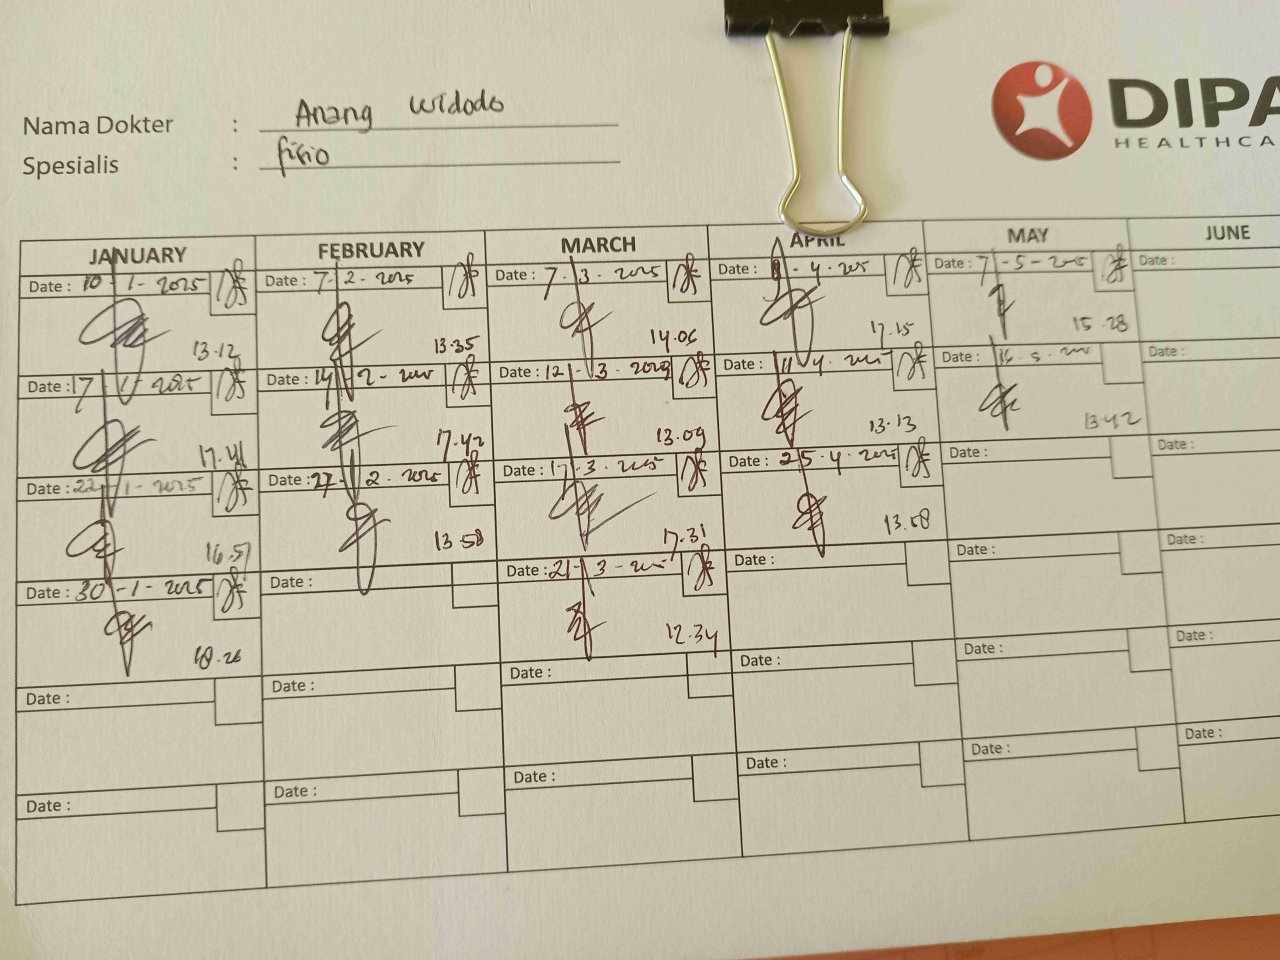 Nama Dokter : Anang Widodo
Spesialis : fisio
DIPA
HEALTHCA
JANUARY FEBRUARY MARCH APRIL MAY JUNE
Date : 10-1-2025 Date : 7-2-2025 Date : 7-3-2025 Date : 8-4-2025 Date : 7-5-2025 Date :
13.12 13.35 14.06 17.15 15.28
Date : 17-1-2025 Date : 14-2-2025 Date : 12-3-2025 Date : 11-4-2025 Date : Date :
17.41 17.42 13.09 13.13 13.42
Date : 22-1-2025 Date : 27-2-2025 Date : 17-3-2025 Date : 25.4.2025 Date : Date :
16.57 13.58 17.31 13.58
Date : 30-1-2025 Date : Date : 21-3-2025 Date : Date : Date :
18.26 12.34
Date : Date : Date : Date : Date : Date :
Date : Date : Date : Date : Date : Date :